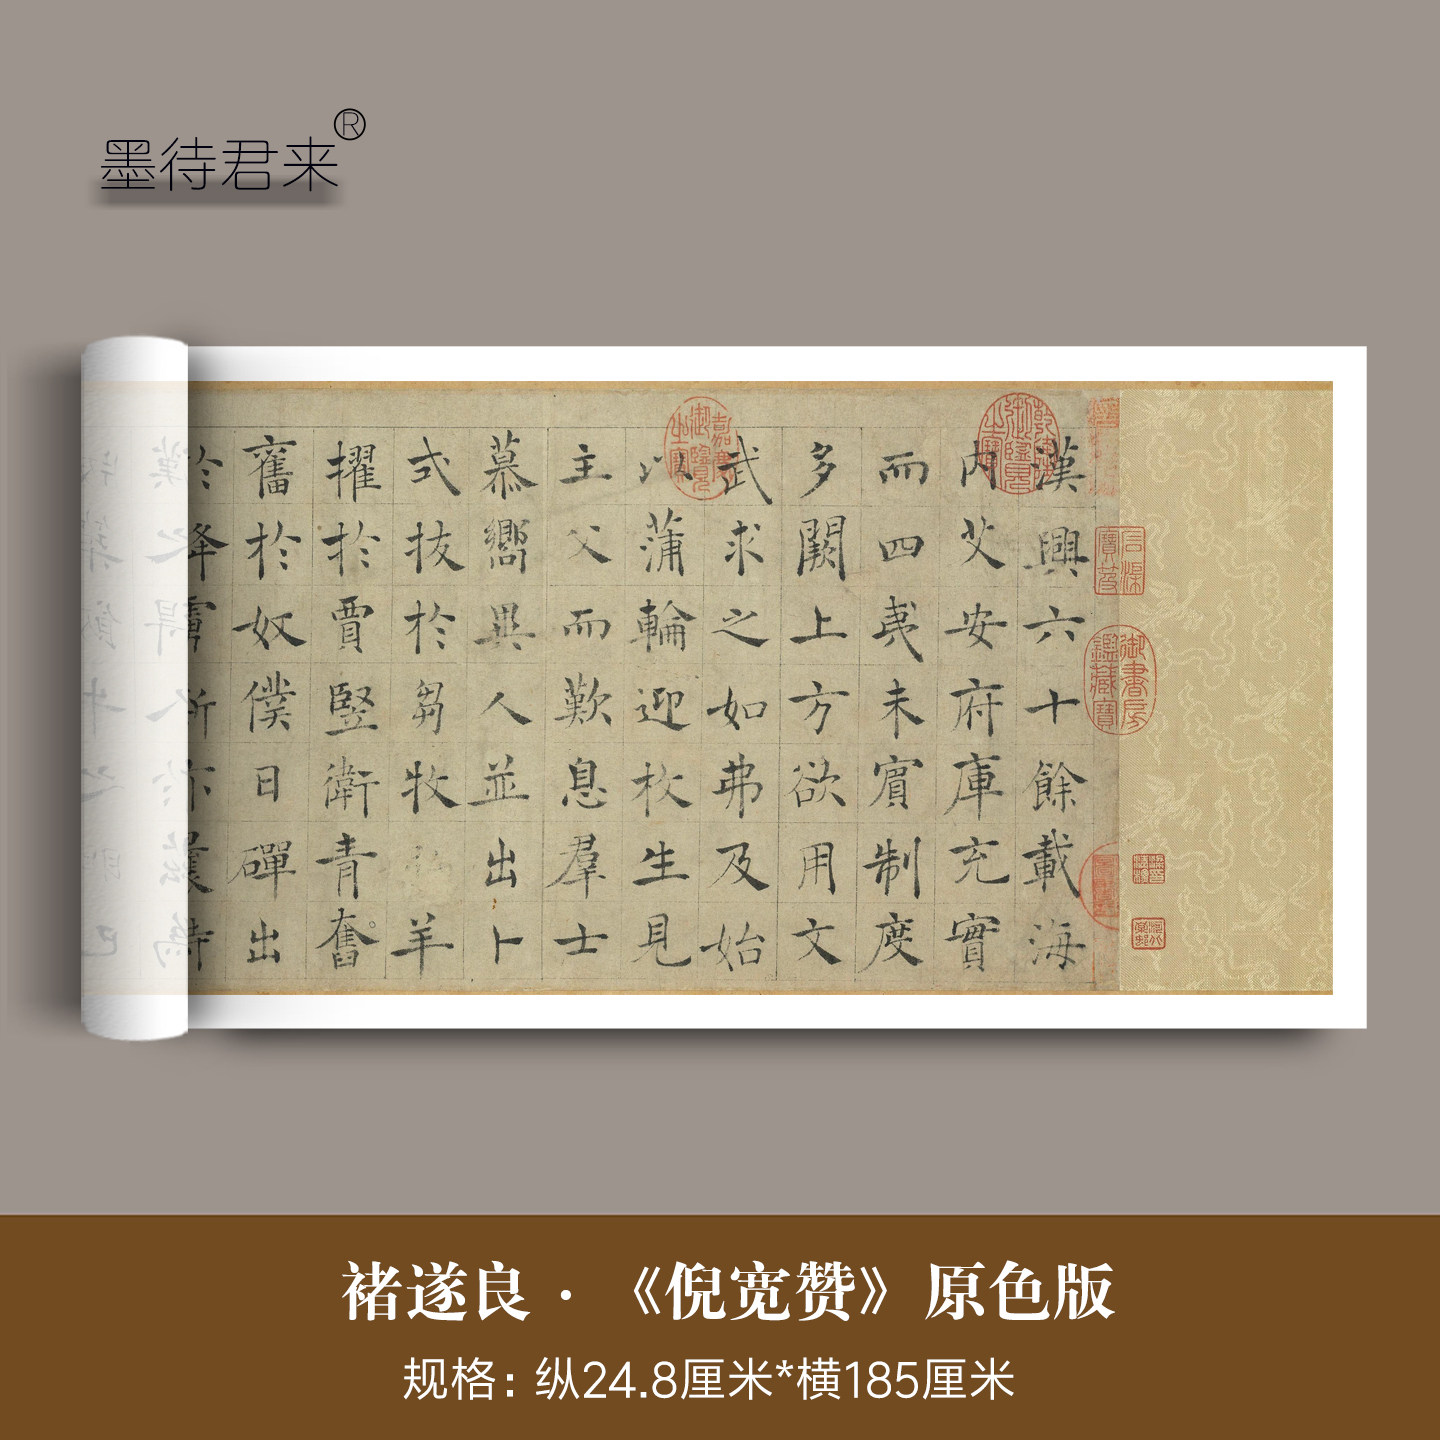 墨待君来®
漢興六十餘載海
内艾安府庫充實
而四夷未賓制度
多闕上方欲用文
武求之如弗及始
以蒲輪迎枚生見
主父而歎息羣士
慕嚮異人並出卜
式拔於芻牧羊
擢於賈竪衛青奮
奮於奴僕日磾出
於降虜斯亦曩時
乾隆御覽之寶
嘉慶御覽之寶
御書房鑑藏寶
褚遂良·《倪宽赞》原色版
规格:纵24.8厘米*横185厘米